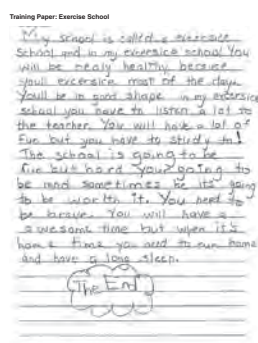 Training Paper: Exercise School
My school is called a exercise
School and in my excersice school You
will be realy healthy because
youll excersice most of the day.
Youll be in good shape in my excersice
school you have to listen a lot to
the teacher. You will have a lot of
Fun but you have to study to!
The school is going to be
fun but hard your going to
be mad sometimes be its going
to be worth it. You need to
be brave. You will have a
awesome time but when it's
home time you need to run home
and have a long sleep.
The End